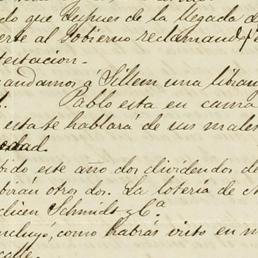 do que despues de la llegada de
erte al Gobierno reclamando
testacion.
mandamos á Sillem una libran
Pablo está en cama
estate hablará de sus males
edad.
bido este año dos dividendos de
biran otros dos. La loteria de
dicen Schmidt y Cª
ncluyó, como habras visto en
calle.